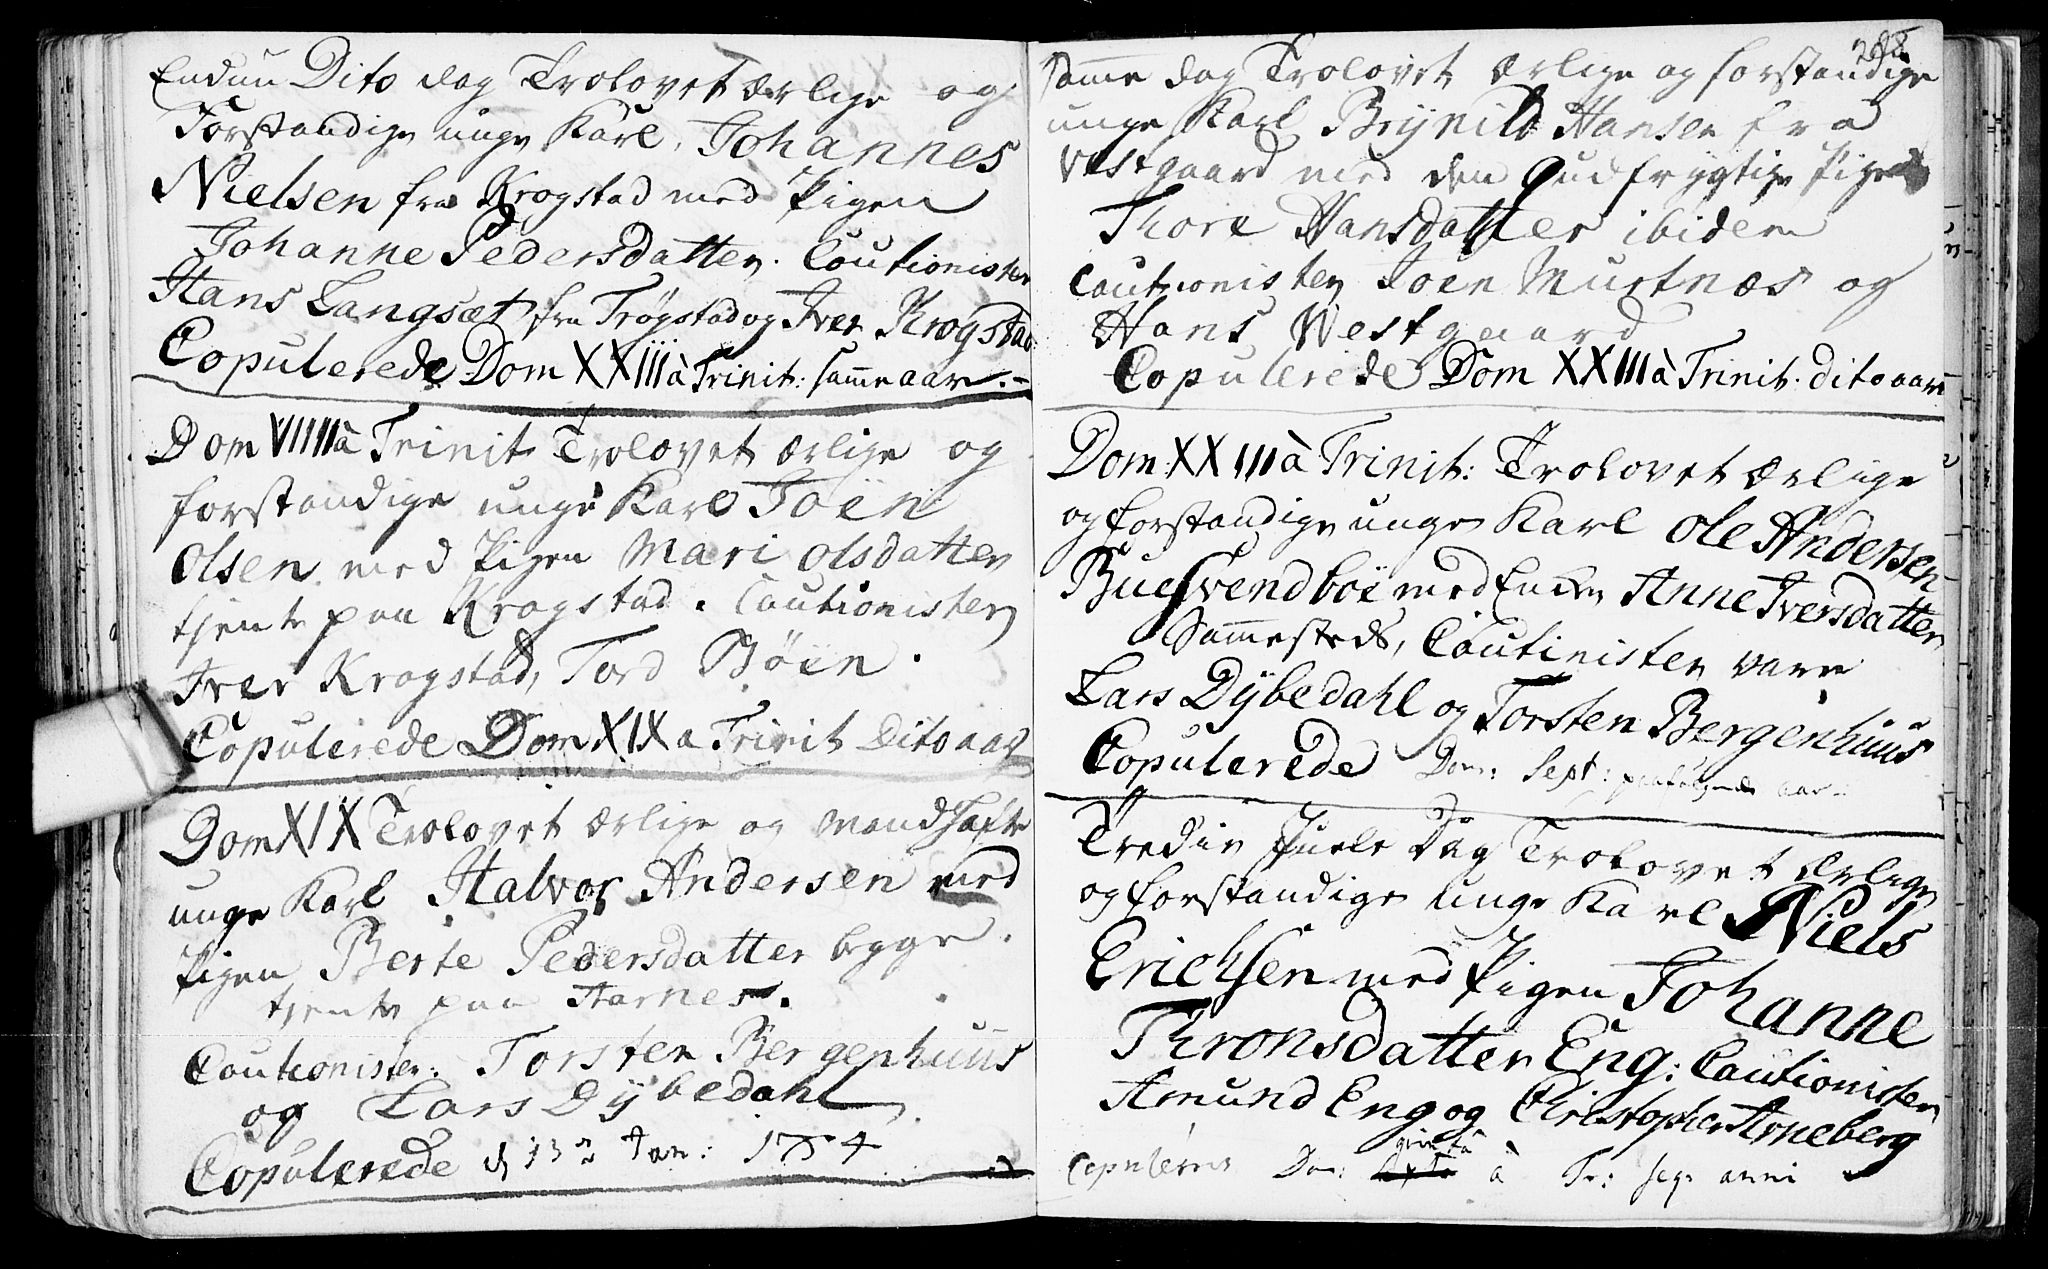 Endnu Dito dag Trolovet ærlige og
Forstandige unge Karl, Johannes
Nielsen fra Krogstad med Pigen
Johanne Pedersdatter. Coutionister
Hans Langsæt fra Trøgstad og Iver Krogstad
Copulerede Dom XXIII à Trinit: samme aar.-
Dom VIIIII à Trinit Trolovet ærlige og
forstandige unge Karl Joën
Olsen med Pigen Mari Olsdatter
tjente paa Krogstad. Cautionister
Iver Krogstad, Tord Böen.
Copulerede Dom XIX a Trinit Dito aar
Dom XIX Trolovet ærlige og Mandhafte
unge Karl Halvor Andersen med
Pigen Berte Pedersdatter begge
tjente paa Aarnes.
Coutionister. Torsten Bergenhuus
og Lars Dÿbedahl
Copulerede d 13 Jan: 1754
288
samme dag Trolovet ærlige og forstandige
unge Karl Brÿnild Hansen fra
Vestgaard med den Gudfrygtige Pige
Thore Hansdatter ibidem
Cautionister Joen Murtnæs og
Hans Westgaard
Copulerede Dom XXIII à Trinit. dito aar
Dom: XXIII à Trinit: Trolovet ærlige
og forstandige unge Karl Ole Andersen
Bue Svendboe med Enken Anne Iversdatter
Sammesteds, Coutinister vare
Lars Dÿbedahl og Torsten Bergenhuus
Copulerede Dom: Sept: paafølgende aar.
Tredie Juele Dag Trolovet ærlige
og forstandige unge Karl Niels
Erichsen med Pigen Johanne
Thronsdatter Eng: Cautionister
Amund Eng og Christopher Arneberg
qvinta
Copuleres Do: à Tr: seq: anni